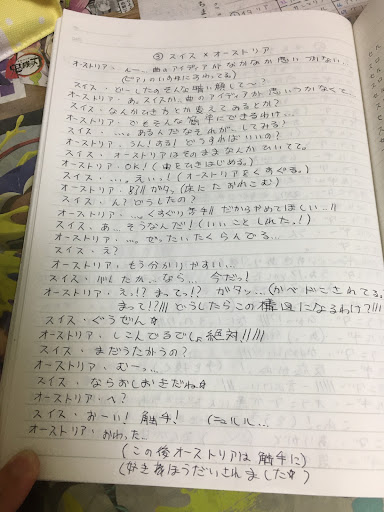 ③ スイス × オーストリア
オーストリア・んー… 曲のアイディアがなかなか思いつかない…
(ピアノのいすにすわってる)
スイス・どーしたのそんな暗い顔して〜?
オーストリア・あ、スイスか…曲のアイディアが思いつかなくて…
スイス・なんかひき方とか変えてみるとか?
オーストリア・でもそんな簡単にできるわけ…
スイス・…。あるんだなそれが…してみる?
オーストリア・うん!する! どうすればいいの?
スイス・オーストリアはそのままなんかひいてて。
オーストリア・OK! (曲をひきはじめる。)
スイス・…。えいっ! (オーストリアをくすぐる。)
オーストリア・ ガタッ (床にたおれこむ)
スイス・ん? どうしたの?
オーストリア・…。くすぐり苦手!! だからやめてほしい…!!
スイス・あ…そうなんだ! (いいことしれた。!)
オーストリア・…。ぜったいたくらんでる…
スイス・え?
オーストリア・もう分かりやすい…
スイス・バレたか…なら… 今だっ!
オーストリア・え!? まって!? ガタッ…(かべドンされてる。
まって!?!!! どうしたらこの構図になるわけ?!!!
スイス・ぐうぜん☆
オーストリア・しこんでるでしょ絶対!!!!
スイス・まだうたがうの?
オーストリア・むーっ…
スイス・ならおしおきだね☆
オーストリア・へ?
スイス・おーい! 触手! (ニュルル…
オーストリア・おわった…
(この後オーストリアは触手に)
(好き放ほうだいされました☆)